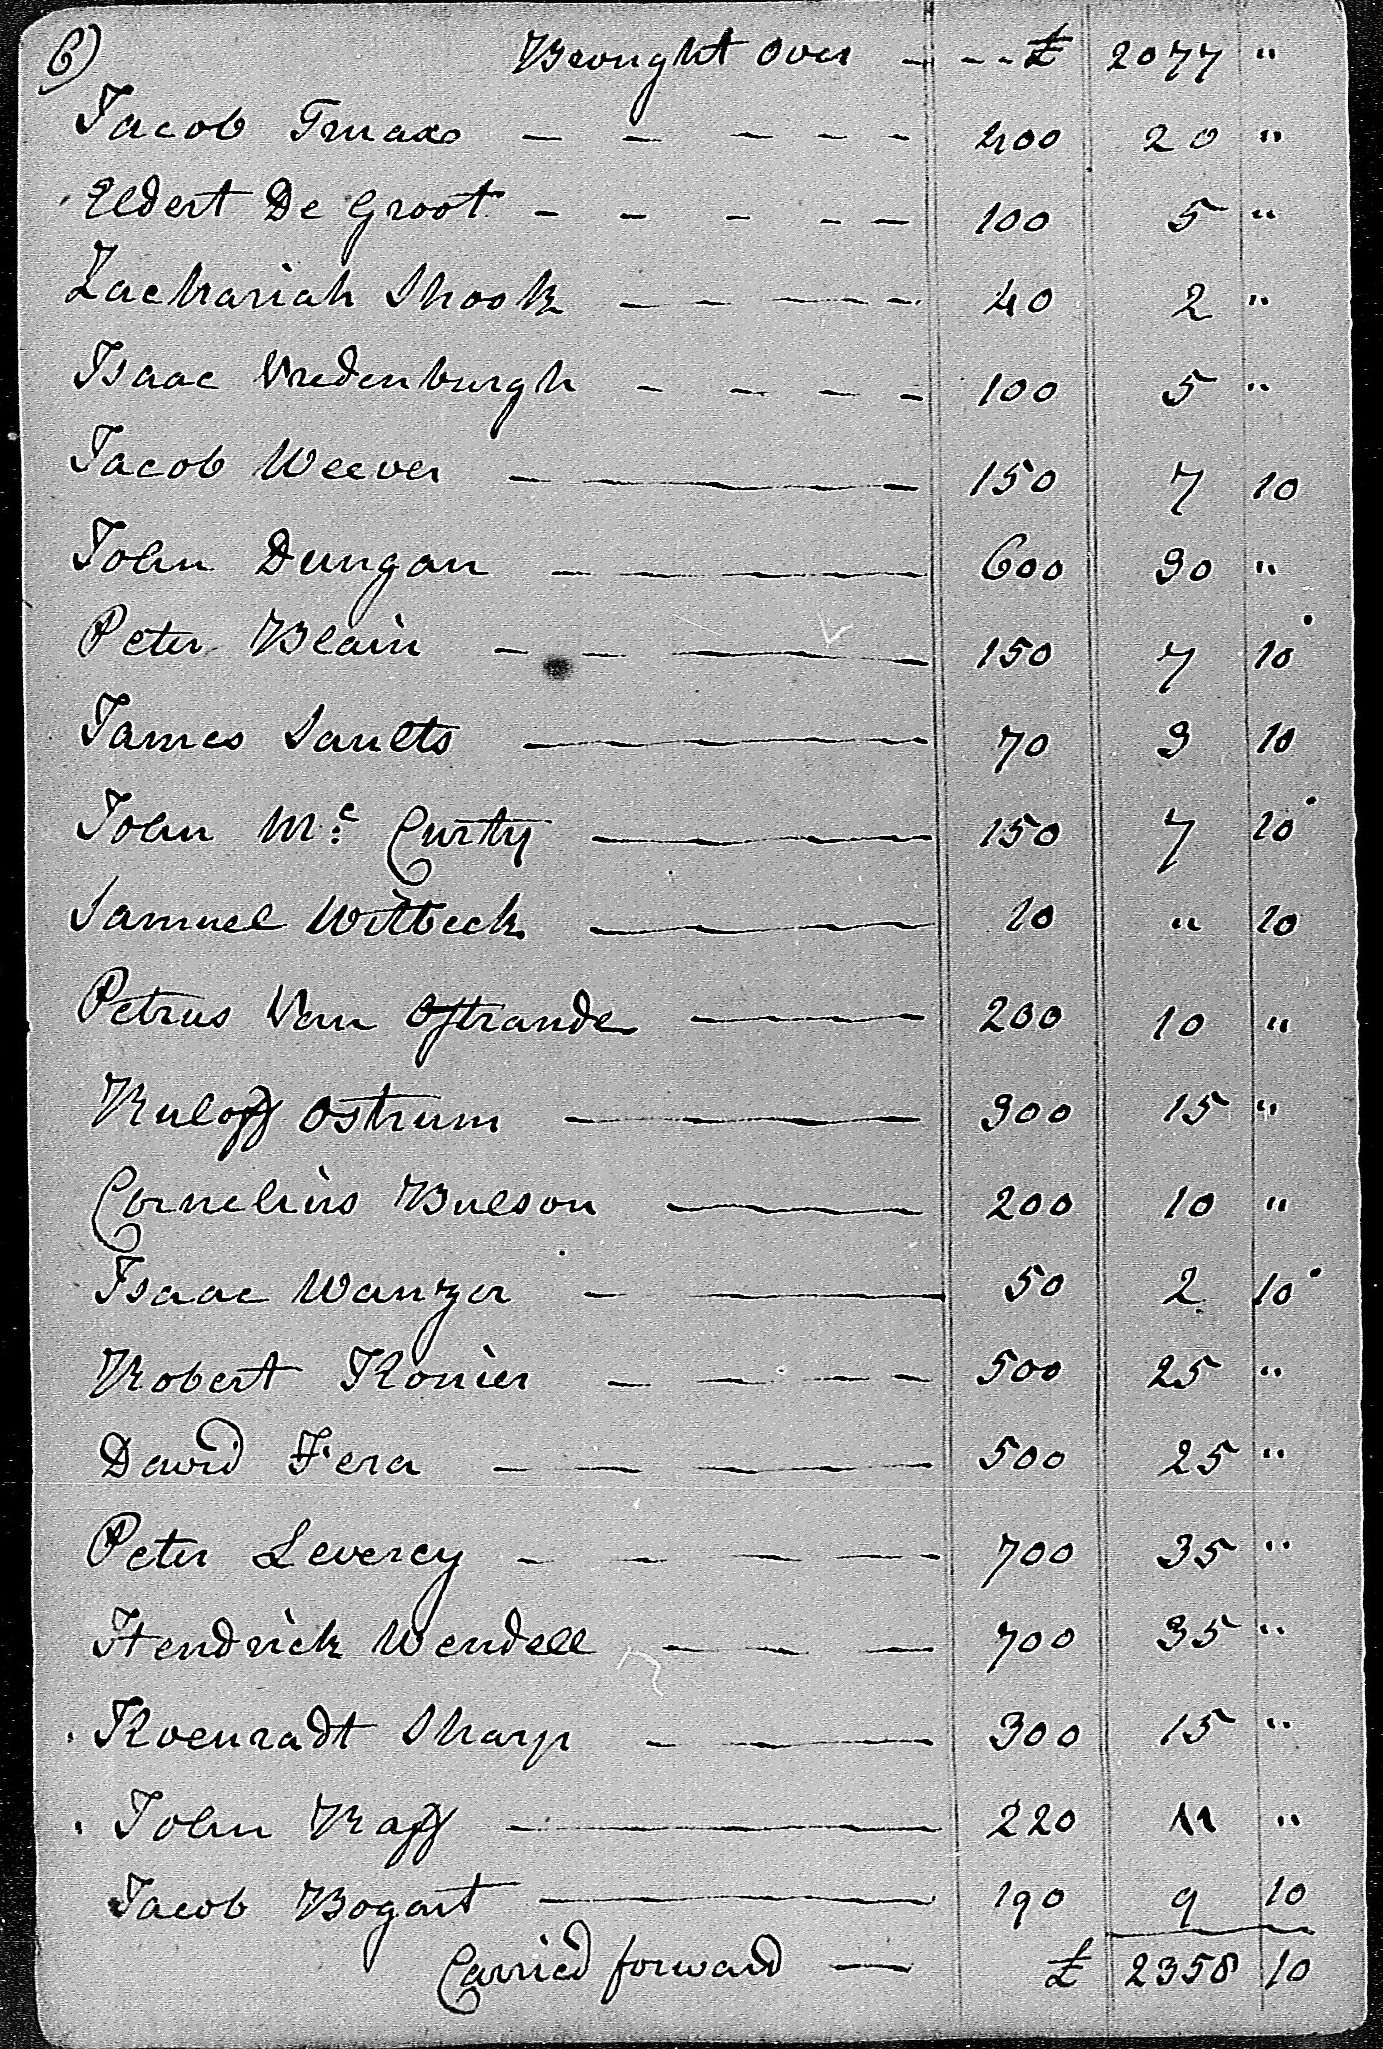 6) Brought Over - - - £ 2077 "
Jacob Truax - - - - - 400 20 "
Eldert De Groot - - - - - 100 5 "
Zachariah Shook - - - - - 40 2 "
Isaac Vredenburgh - - - - 100 5 "
Jacob Weever - - - - - 150 7 10
John Dungan - - - - - 600 30 "
Peter Blain - - - - - 150 7 10
James Saults - - - - - 70 3 10
John Mc. Curty - - - - 150 7 10
Samuel Witbeck - - - - 10 " 10
Petrus Van Ostrander - - - 200 10 "
Ruloff Ostrum - - - - 300 15 "
Cornelius Bulson - - - 200 10 "
Isaac Wanzer - - - - 50 2 10
Robert Konier - - - - 500 25 "
David Fera - - - - - 500 25 "
Peter Leverey - - - - - 700 35 "
Hendrick Wendell - - - 700 35 "
Koenradt Sharp - - - 300 15 "
John Raff - - - - - 220 11 "
Jacob Bogart - - - - 190 9 10
Carried forward - £ 2358 10